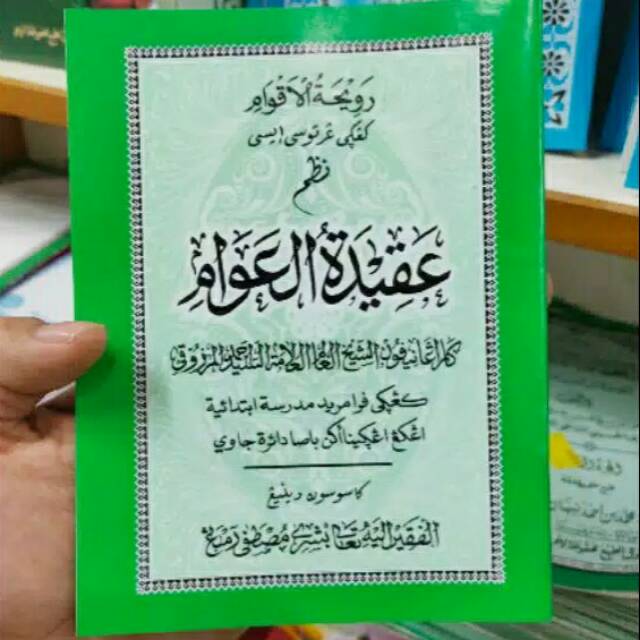 رويحة الاقوام
كڠڮى ڠرتوسى ايسى
نظم
عقيدة العوام
كاراڠانيفون الشيخ العالم العلامة السيد احمد المرزوقي
كڠڮى فرا مريد مدرسة ابتدائية
اڠكڠ اڠڮيناأكن باسا دائرة جاوي
كاسوسون دينيڠ
الفقير اليه تعالى بشرى مصطفى رمباڠ